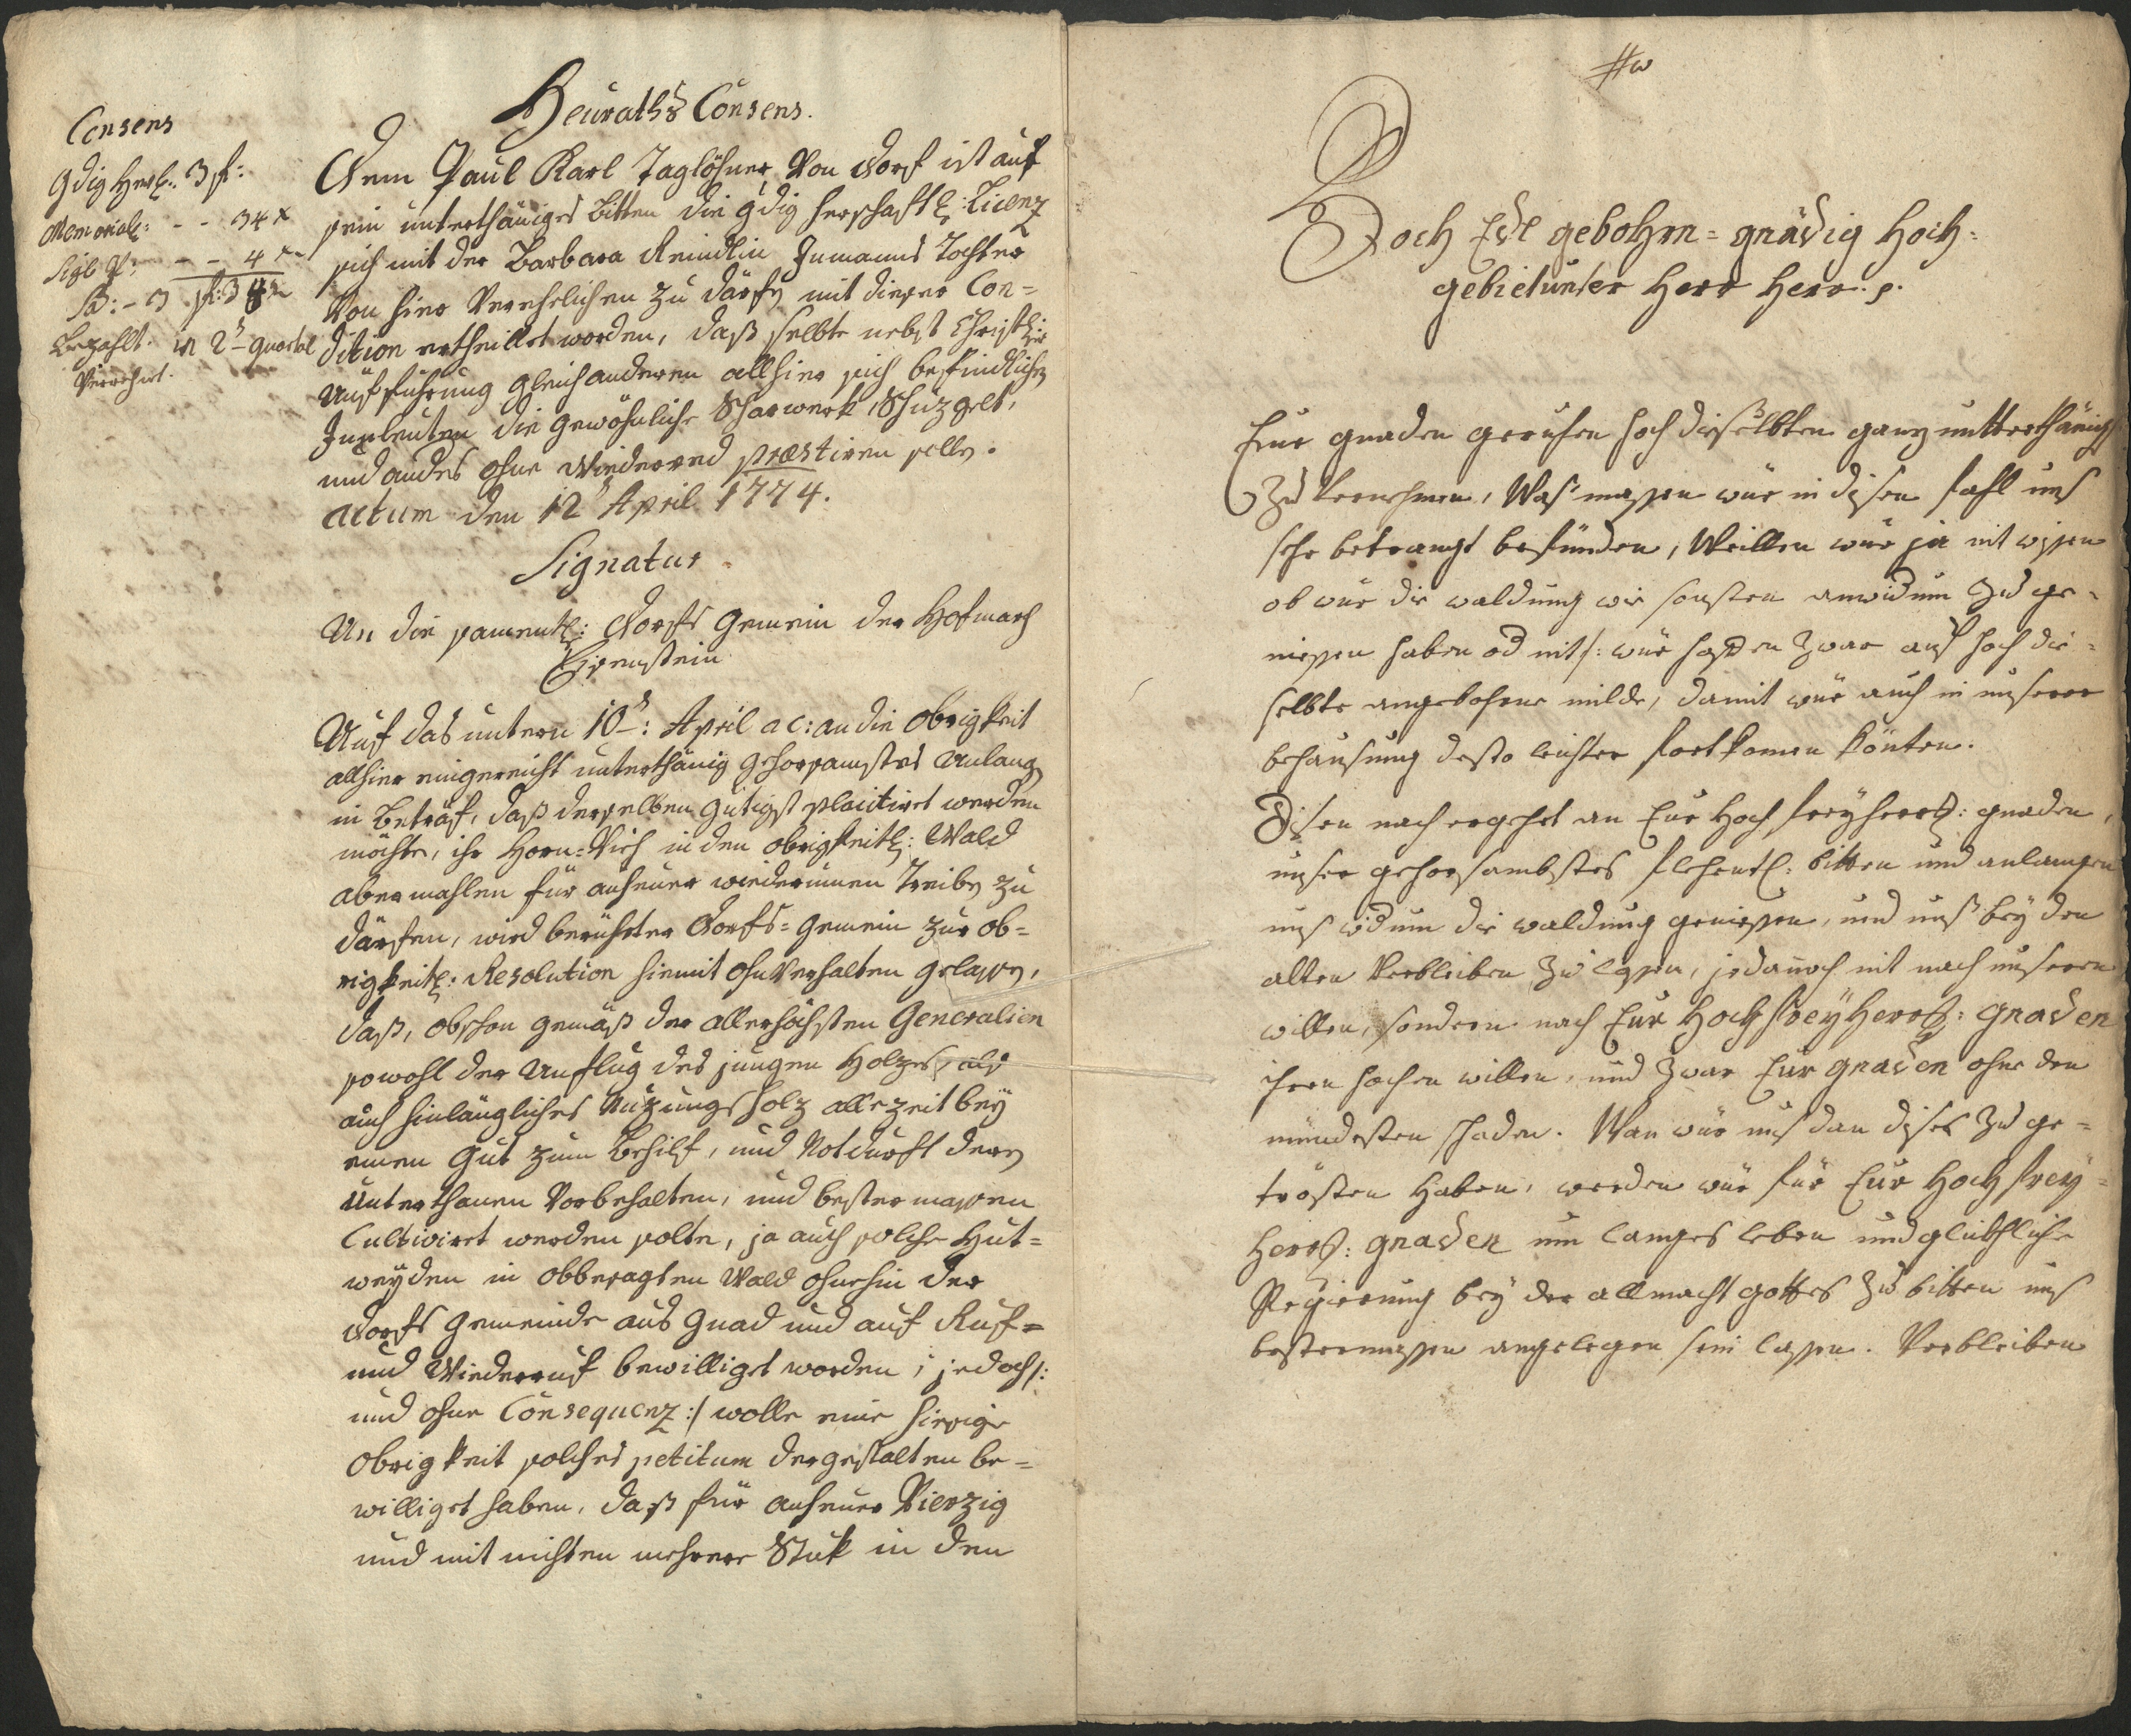 Consens
Gdig Herl: 3 fl:
Memorial: - - 34 x
Sigl P: - - 4 x
Sa: - 3 fl: 38 x
Bezahlt. in 2t quartal
Verrehnt.
Heuraths Consens.
Dem Paul Karl Taglöhner von Dorf ist auf
sein unterthäniges Bitten die gdig herschaftl: Licenz
sich mit der Barbara Reindlin Inmanns Tochter
von hier verehelichen zu därfen mit dieser Con=
dition ertheillet worden, daß selbte nebst Christl:r
Aufführung gleich anderen allhier sich befindlichen
Inleuten die gewöhnliche Scharwerk, Schuzgelt,
und andres ohne Wiederred præstiren solle.
Actum den 12t April 1774.
Signatur
An die samentl: Dorfs Gemein der Hofmarch
Eisenstein
Auf das untern 10t: April a c: an die Obrigkeit
allhier eingereicht unterthänig gehorsamstes Anlangen
in Beträf, daß derselben gütigst placitiret werden
möchte, ihr Horn=Vieh in den obrigkeitl: Wald
abermahlen für anheuer wiederumen Treiben zu
därfen, wird berührter Dorfs=Gemein zur ob=
rigkeitl: Resolution hiemit ohnverhalten gelassen,
daß, obschon gemäß der allerhöchsten Generalien
sowohl der Anflug des jungen Holzes, als
auch hinlängliches Nuzungsholz allezeit bey
einen Gut zum Behilf, und Notdurft deren
Unterthanen Vorbehalten, und bestermassen
Cultiviret werden solte, ja auch solche Hut=
weyden in obbesagten Wald ohnehin der
Dorfs Gemeinde aus Gnad und auf Ruf=
und Wiederruf bewilliget worden, jedoch /:
und ohne Consequenz :/ wolle eine hiesige
Obrigkeit solches petitum dergestalten be=
williget haben, daß für anheuer Vierzig
und mit nichten mehrere Stuk in den
Hoch Edl gebohrn= gnädig Hoch=
gebietunter Herr Herr. p.
Eur gnaden geruhen hoch dieselbten ganz untterthänigst
zu vernehmen, Was massen wür in disen fahl uns
sehr betrangt befünden, Weillen wür ja nit wissen
ob wür die waldung wie sonsten anwidum zu ge=
niessen haben od nit /: wür hoffen zwar auf hoch die=
selbte angebohrne milde, damit wür auch in unserer
behausung desto leichter fortkomen könten.
Disen nach ergehet an Eur Hoch freyherrl: gnaden,
unser gehorsambstes flehentl: bitten und anlangen
uns widum die waldung geniessen, und unß bey den
alten Verbleiben zu lassen, jedannoch nit nach unseren
willen, sondern nach Eur Hochfreyherrl: gnaden
ihren hochen willen, und zwar Eur gnaden ohne den
mündesten schaden. Wan wür uns dan dises zu ge=
trösten haben, werden wür für Eur Hochfrey=
herrl: gnaden um langes leben und glückliche
Regierung bey der allmacht gottes zu bitten uns
bestermassen angelegen sein lassen. Verbleiben